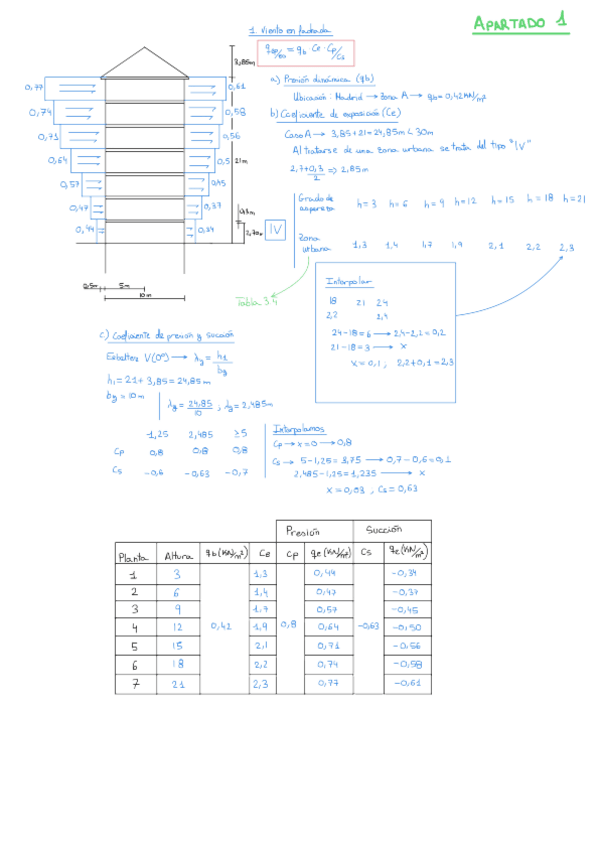 APARTADO 1
1. Viento en fachada
qep/es = qb · Ce · Cp/Cs
a) Presión dinámica (qb)
Ubicación: Madrid → Zona A → qb = 0,42 KN/m²
b) Coeficiente de exposición (Ce)
Caso A → 3,85 + 21 = 24,85 m < 30m
Al tratarse de una zona urbana se trata del tipo "IV"
2,7+0,3/2 => 2,85m
3,85m
0,77 0,61
0,74 0,58
0,71 0,56
0,64 0,5
21m
0,57 0,45
0,47 0,37
0,3m
0,44 0,34
2,70m
0.5m 5m
10m
IV
Grado de aspereza h=3 h=6 h=9 h=12 h=15 h=18 h=21
Zona urbana 1,3 1,4 1,7 1,9 2,1 2,2 2,3
Tabla 3.4
Interpolar
18 21 24
2,2 2,4
24-18=6 → 2,4-2,2=0,2
21-18=3 → x
x=0,1; 2,2+0,1=2,3
c) Coeficiente de presión y succión
Esbeltez V(0º) → λy = h1/by
h1 = 21 + 3,85 = 24,85 m
by = 10 m
λy = 24,85/10; λy = 2,485m
1,25 2,485 ≥5
Cp 0,8 0,8 0,8
Cs -0,6 -0,63 -0,7
Interpolamos
Cp → x=0 → 0,8
Cs → 5-1,25=3,75 → 0,7-0,6=0,1
2,485-1,25=1,235 → x
x=0,03, Cs=0,63
Presión Succión
Planta Altura qb(KN/m²) Ce Cp qe(KN/m²) Cs qe(KN/m²)
1 3 1,3 0,44 -0,34
2 6 1,4 0,47 -0,37
3 9 1,7 0,57 -0,45
4 12 0,42 1,9 0,8 0,64 -0,63 -0,50
5 15 2,1 0,71 -0,56
6 18 2,2 0,74 -0,58
7 21 2,3 0,77 -0,61